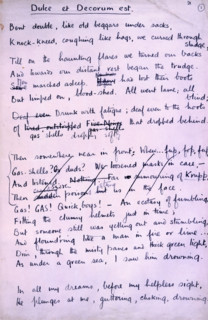 Dulce et Decorum est.
Bent double, like old beggars under sacks,
Knock-kneed, coughing like hags, we cursed through
sludge,
Till on the haunting flares we turned our backs
And towards our distant rest began the trudge.
marched asleep. Many has lost their boots
But limped on, blood-shod. All went lame, all
blind;
Drunk with fatigue; deaf even to the hoots
Of that dropped behind.
Then somewhere near in front;
Gas-shells?
Then
Gas! GAS! Quick, boys! — An ecstasy of fumbling
Fitting the clumsy helmets just in time;
But someone still was yelling out and stumbling,
And floundering like a man in fire or lime. —
Dim, through the misty panes and thick green light,
As under a green sea, I saw him drowning.
In all my dreams, before my helpless sight,
He plunges at me, guttering, choking, drowning.